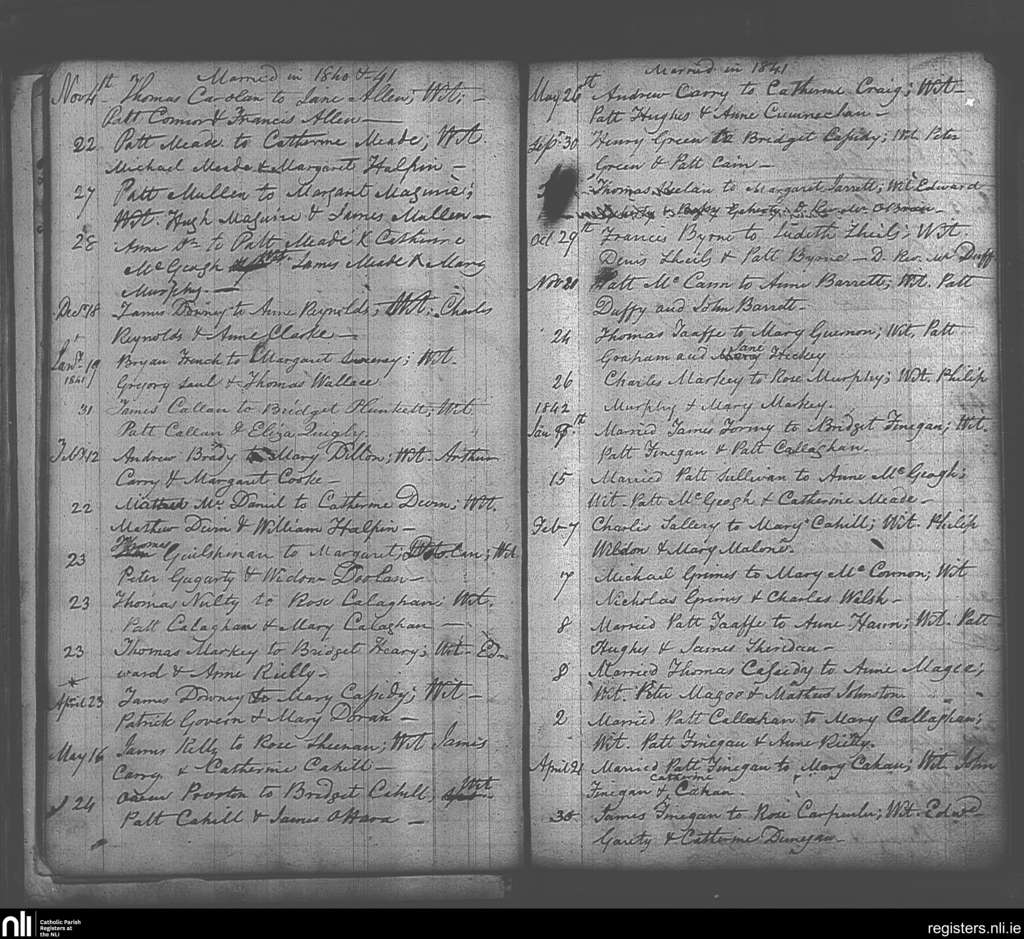 Married in 1840 & 41
Nov 4th Thomas Carolan to Jane Allen; Wit; —
Patt Connor & Francis Allen —
22 Patt Meade to Catherine Meade; Wit.
Michael Meade & Margaret Halpin —
27 Patt Mullen to Margaret Maguire;
Wit. Hugh Maguire & James Mullen —
28 Anne to Patt Meade & Catherine
McGeogh Wit. James Meade & Mary
Murphy. —
Decr 18 James Downey to Anne Reynolds; Wit; Charles
Reynolds & Anne Clarke —
Jany 19 Bryan French to Margaret Sweeney; Wit.
1841 Gregory Saul & Thomas Wallace
31 James Callan to Bridget Plunkett; Wit
Patt Callan & Eliza Quigly.
Feb 12 Andrew Brady to Mary Dillon; Wit. Arthur
Carry & Margaret Cooke —
22 Mc Daniel to Catherine Devin; Wit.
Mathew Devin & William Halpin —
Thomas
23 Guilshinan to Margaret Doolan; Wit
Peter Gagarty & Widow Doolan —
23 Thomas Nulty to Rose Calaghan; Wit.
Patt Calaghan & Mary Calaghan —
23 Thomas Markey to Bridget Heary; Wit. Ed-
ward & Anne Rielly —
April 23 James Downey to Mary Casidy; Wit —
Patrick Govern & Mary Doran —
May 16 James Kelly to Rose Sheenan; Wit James
Carry & Catherine Cahill —
Wit
24 Owen Proston to Bridget Cahill;
Patt Cahill & James OHara —
Married in 1841
May 26th Andrew Carry to Catherine Craig; Wit —
Patt Hughes & Anne —
Sept 30 Henry Green to Bridget Casidy; Wit Peter
Green & Patt Cain —
Thomas to Margaret Jarrett; Wit Edward
OBrien —
Oct 29th Francis Byrne to Judith Sheils; Wit.
Denis Sheils & Patt Byrne — D. Rev. Mr Duffy
Nov 21 Patt McCann to Anne Barrett; Wit. Patt
Duffy and John Barrett —
24 Thomas Taaffe to Mary Guernon; Wit. Patt
Jane
Graham and Hickey
26 Charles Markey to Rose Murphy; Wit. Philip
1842 Murphy & Mary Markey.
Jan Married James Torney to Bridget Finegan; Wit.
Patt Finegan & Patt Callaghan.
15 Married Patt Sullivan to Anne McGeogh;
Wit. Patt McGeogh & Catherine Meade —
Feb 7 Charles Sallery to Mary Cahill; Wit. Philip
Weldon & Mary Malone.
7 Michael Grimes to Mary McConnon; Wit
Nicholas Grimes & Charles Walsh —
8 Married Patt Taaffe to Anne Hawn; Wit. Patt
Hughes & James Sheridan —
8 Married Thomas Casidy to Anne Magee;
Wit. Peter Magee & Mathew Johnston
2 Married Patt Callaghan to Mary Callaghan;
Wit. Patt Finegan & Anne Rielly.
April 21 Married Patt Finegan to Mary Cahan; Wit. John
Catherine
Finegan & Cahan.
30 James Finegan to Rose Carpenter; Wit. Edwd
Garety & Catherine Dunegan —
nli
Catholic Parish
Registers at
the NLI
registers.nli.ie